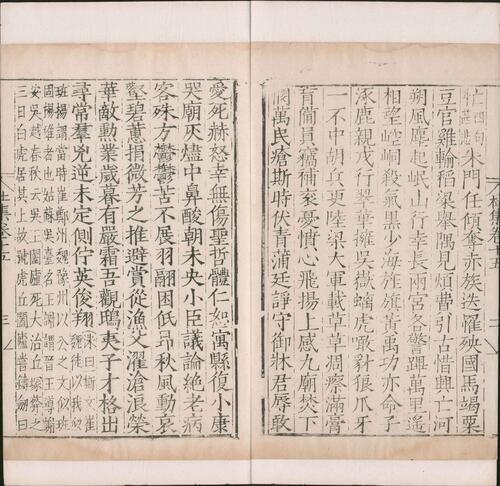 朱門任傾奪赤族迭罹殃國馬竭粟
豆官雞輸稻粱舉隅見煩費引古惜興亡河
朔風塵起岷山行幸長兩宮各警蹕萬里遙
相望崆峒殺氣黑少海旌旗黃禹功亦命子
涿鹿親戎行翠華擁吳嶽螭虎噉豺狼爪牙
一不中胡兵更陸梁大軍載草草凋瘵滿膏
肓備員竊補袞憂憤心飛揚上感九廟焚下
憫萬民瘡斯時伏青蒲廷諍守御牀君辱敢
愛死赫怒幸無傷聖哲體仁恕㝢縣復小康
哭廟灰燼中鼻酸朝未央小臣議論絕老病
客殊方鬱鬱苦不展羽翮困低昂秋風動哀
壑碧蕙捐微芳之推避賞從漁父濯滄浪榮
華敵勳業歲暮有嚴霜吾觀鴟夷子才格出
尋常羣兇逆未定側佇英俊翔
洙曰斯文崔
魏徒以我似
班揚謂當時崔鄭州魏豫州以公之文似班
固揚雄者也姑蘇吳王
安吳越春秋云吳王闔廬死大治丘塚葬之
三日白虎居其上故號虎丘